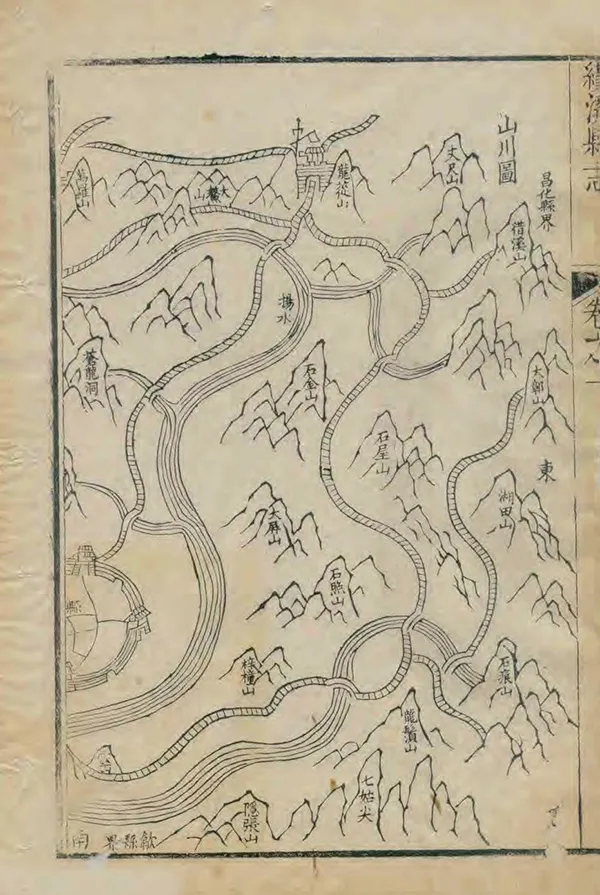 績溪縣志
卷
山川圖
昌化縣界
借溪山
丈尺山
龍從山
大鰲山
大鄣山
東
湖田山
揚水
石金山
石屋山
蒼龍洞
大屏山
石照山
石痕山
縣
龍鬚山
七姑尖
隱張山
歙縣界
南